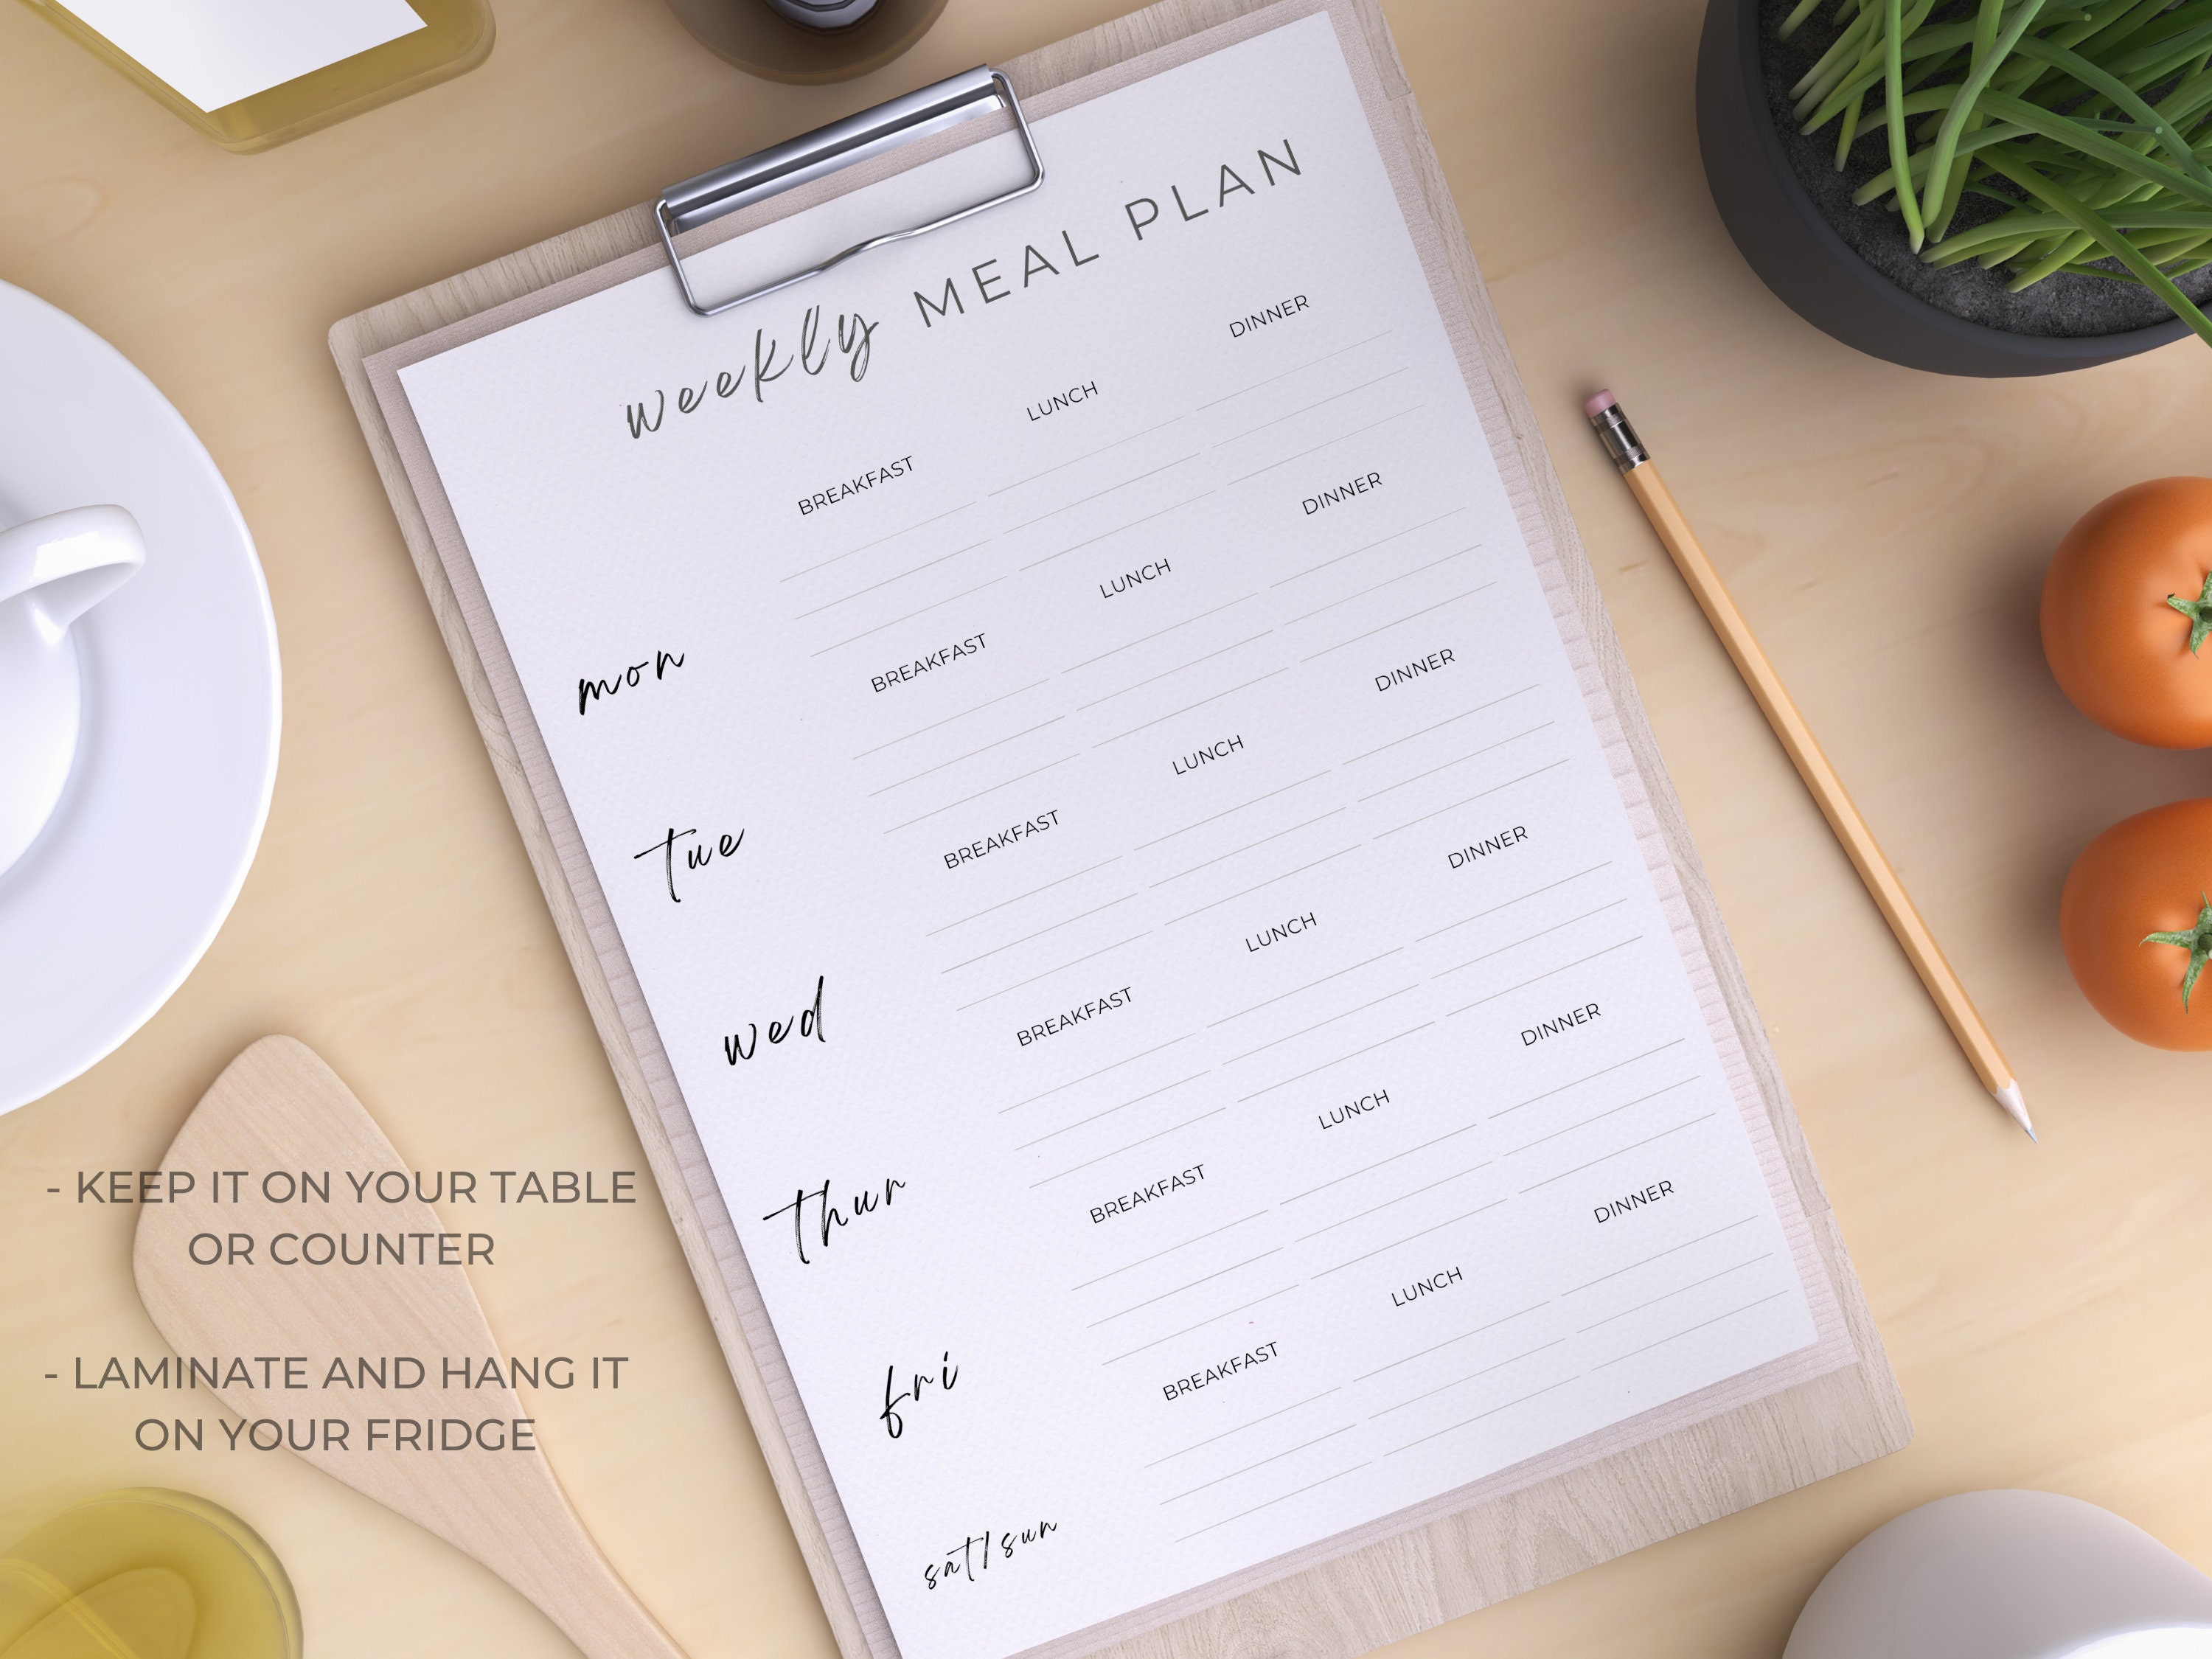 weekly MEAL PLAN
BREAKFAST LUNCH DINNER
mon
BREAKFAST LUNCH DINNER
Tue
BREAKFAST LUNCH DINNER
wed
BREAKFAST LUNCH DINNER
Thur
BREAKFAST LUNCH DINNER
fri
BREAKFAST LUNCH DINNER
sat/sun
- KEEP IT ON YOUR TABLE
OR COUNTER
- LAMINATE AND HANG IT
ON YOUR FRIDGE